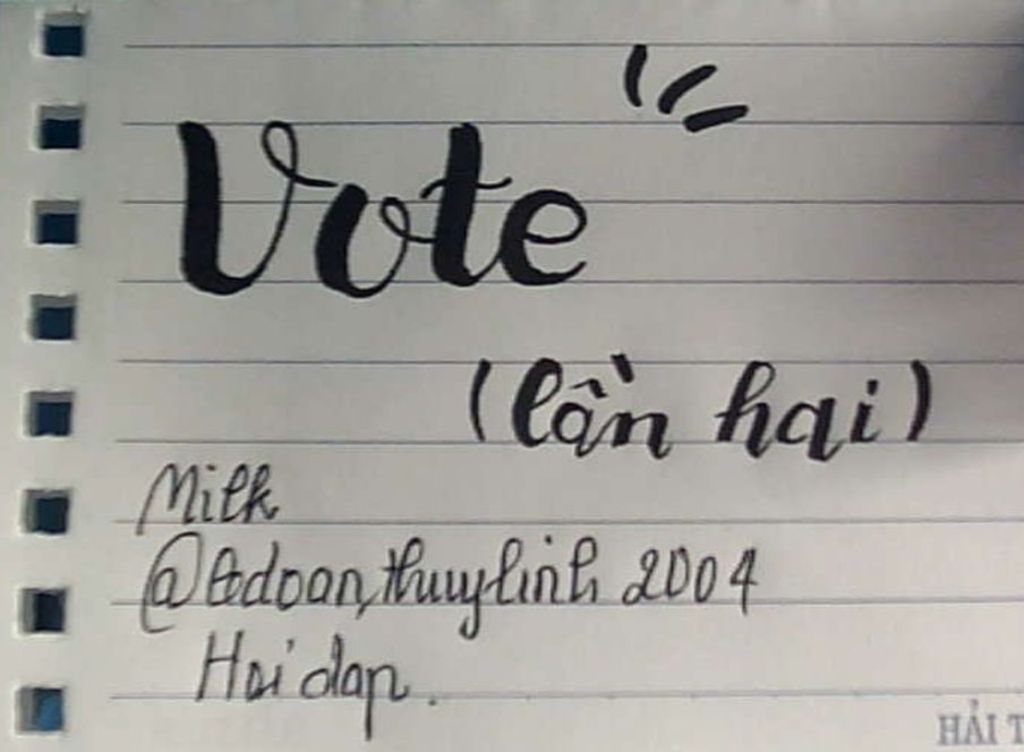 Vote
(lần hai)
Milk
@tdoan,thuylinh 2004
Hoi dap.
HẢI T